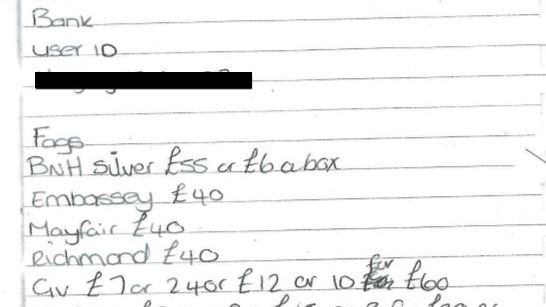 Bank
user ID
Fags
BNH silver £55 or £6 a box
Embassey £40
Mayfair £40
Richmond £40
GV £7 or 2 for £12 or 10 for £60